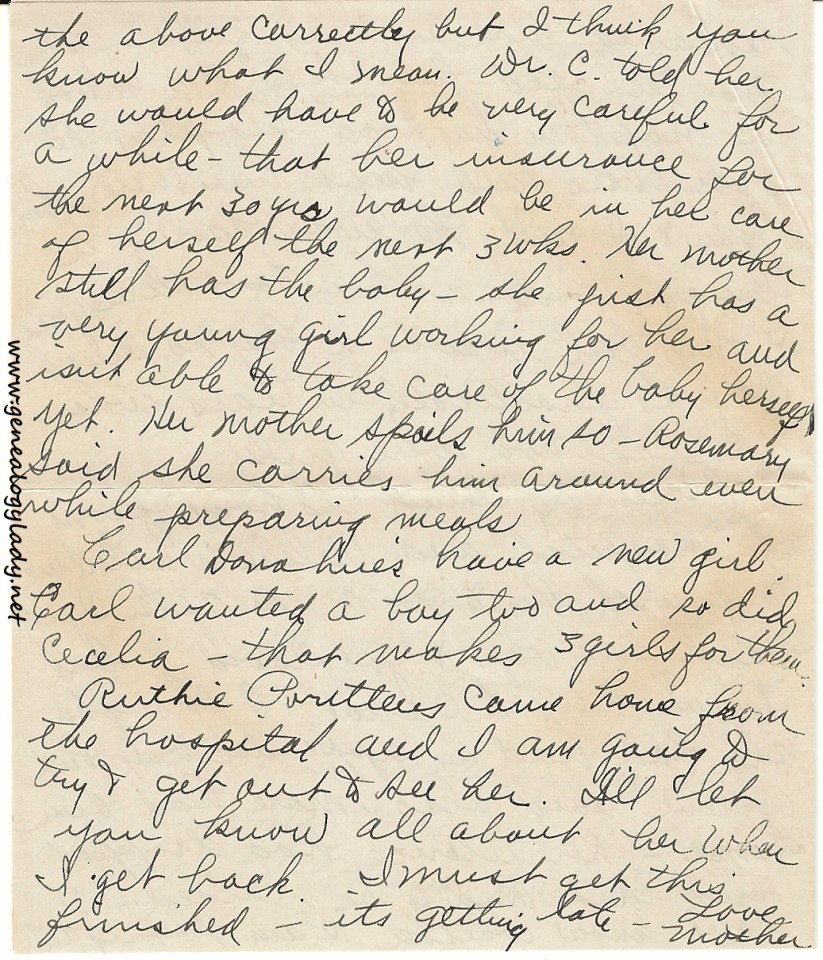 the above correctly but I think you
know what I mean. Dr. C. told her
she would have to be very careful for
a while - that her insurance for
the next 30 yrs would be in her care
of herself the next 3 wks. Her mother
still has the baby - she just has a
very young girl working for her and
isn't able to take care of the baby herself
yet. Her mother spoils him so - Rosemary
said she carries him around even
while preparing meals
Carl Donahue's have a new girl.
Carl wanted a boy too and so did
Cecelia - that makes 3 girls for them.
Ruthie came home from
the hospital and I am going to
try & get out to see her. I'll let
you know all about her when
I get back. I must get this
finished - its getting late - Love
Mother
www.genealogylady.net